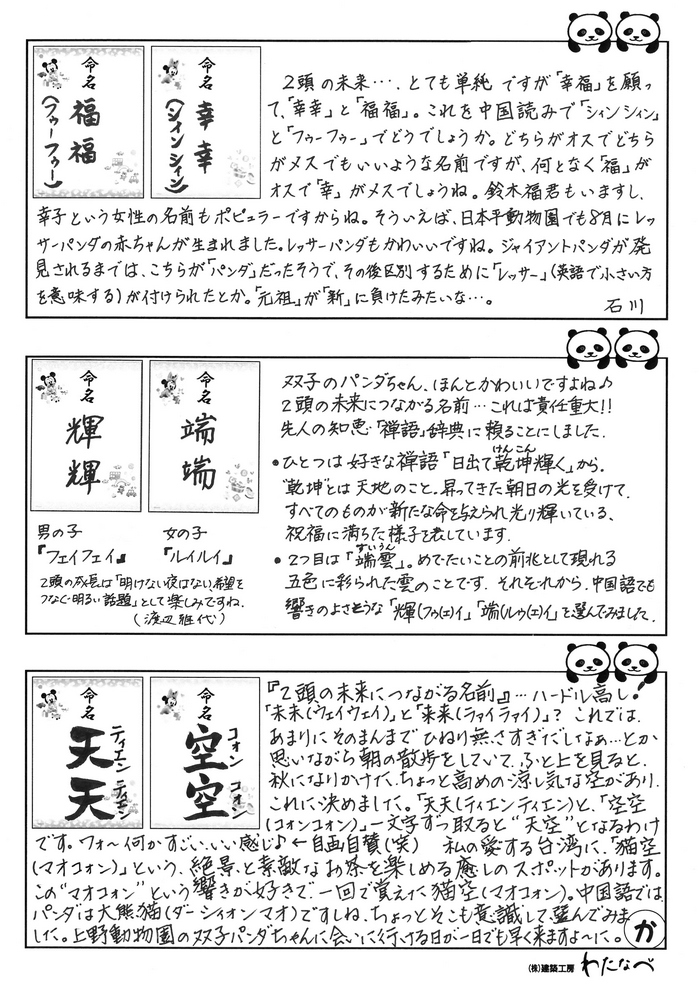 命名
福福
(フゥーフゥー)
命名
幸幸
(シィンシィン)
2頭の未来…、とても単純ですが「幸福」を願っ
て、「幸幸」と「福福」。これを中国読みで「シィンシィン」
と「フゥーフゥー」でどうでしょうか。どちらがオスでどちら
がメスでもいいような名前ですが、何となく「福」が
オスで「幸」がメスでしょうね。鈴木福君もいますし、
幸子という女性の名前もポピュラーですからね。そういえば、日本平動物園でも8月にレッ
サーパンダの赤ちゃんが生まれました。レッサーパンダもかわいいですね。ジャイアントパンダが発
見されるまでは、こちらが「パンダ」だったそうで、その後区別するために「レッサー」(英語で小さい方
を意味する)が付けられたとか。「元祖」が「新」に負けたみたいな…。
石川
命名
輝輝
命名
端端
男の子
『フェイフェイ』
女の子
『ルイルイ』
2頭の成長は「明けない夜はない、希望を
つなぐ・明るい話題」として楽しみですね。
(渡辺雅代)
双子のパンダちゃん、ほんとかわいいですよね♪
2頭の未来につながる名前…これは責任重大!!
先人の知恵・「禅語」辞典に頼ることにしました。
●ひとつは好きな禅語「日出て乾坤輝く」から。
けんこん
"乾坤"とは天地のこと。昇ってきた朝日の光を受けて、
すべてのものが新たな命を与えられ光り輝いている、
祝福に満ちた様子を表しています。
●2つ目は「端雲」。めでたいことの前兆として現れる
ずいうん
五色に彩られた雲のことです。それぞれから、中国語でも
響きのよさそうな「輝(フゥェ)イ」「端(ルゥェ)イ」を選んでみました。
命名
天天
ティエン ティエン
命名
空空
コォン コォン
『2頭の未来につながる名前』…ハードル高し!
「未未(ウェイウェイ)」と「来来(ライライ)」?これでは、
あまりにそのまんまでひねり無さすぎだしなぁ…とか
思いながら朝の散歩をしていて、ふと上を見ると、
秋になりかけた、ちょっと高めの涼し気な空があり、
これに決めました。「天天(ティエンティエン)と、「空空
(コォンコォン)」一文字ずつ取ると"天空"となるわけ
です。フォ〜何かすごい、いい感じ♪←自画自賛(笑) 私の愛する台湾に、「猫空
(マオコォン)」という、絶景と素敵なお茶を楽しめる癒しのスポットがあります。
この"マオコォン"という響きが好きで、一回で覚えた猫空(マオコォン)。中国語では、
パンダは大熊猫(ダーシィオンマオ)ですしね、ちょっとそこも意識して、選んでみま
した。上野動物園の双子パンダちゃんに会いに行ける日が一日でも早く来ますよ〜に。 か
(株)建築工房 わたなべ